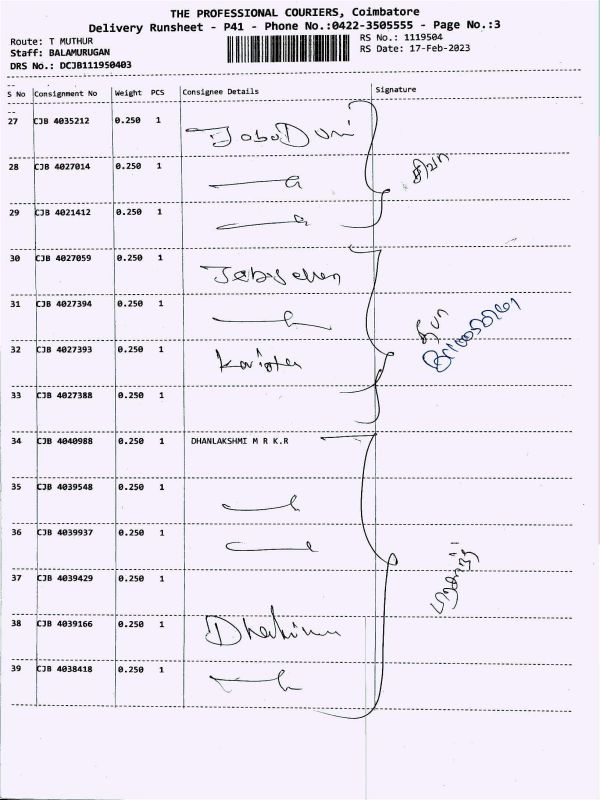 THE PROFESSIONAL COURIERS, Coimbatore
Delivery Runsheet - P41 - Phone No.:0422-3505555 - Page No.:3
Route: T MUTHUR
Staff: BALAMURUGAN
DRS No.: DCJB111950403
RS No.: 1119504
RS Date: 17-Feb-2023
S No Consignment No Weight PCS Consignee Details Signature
27 CJB 4035212 0.250 1
28 CJB 4027014 0.250 1
29 CJB 4021412 0.250 1
30 CJB 4027059 0.250 1
31 CJB 4027394 0.250 1
32 CJB 4027393 0.250 1
33 CJB 4027388 0.250 1
34 CJB 4040988 0.250 1 DHANLAKSHMI M R K.R
35 CJB 4039548 0.250 1
36 CJB 4039937 0.250 1
37 CJB 4039429 0.250 1
38 CJB 4039166 0.250 1
39 CJB 4038418 0.250 1